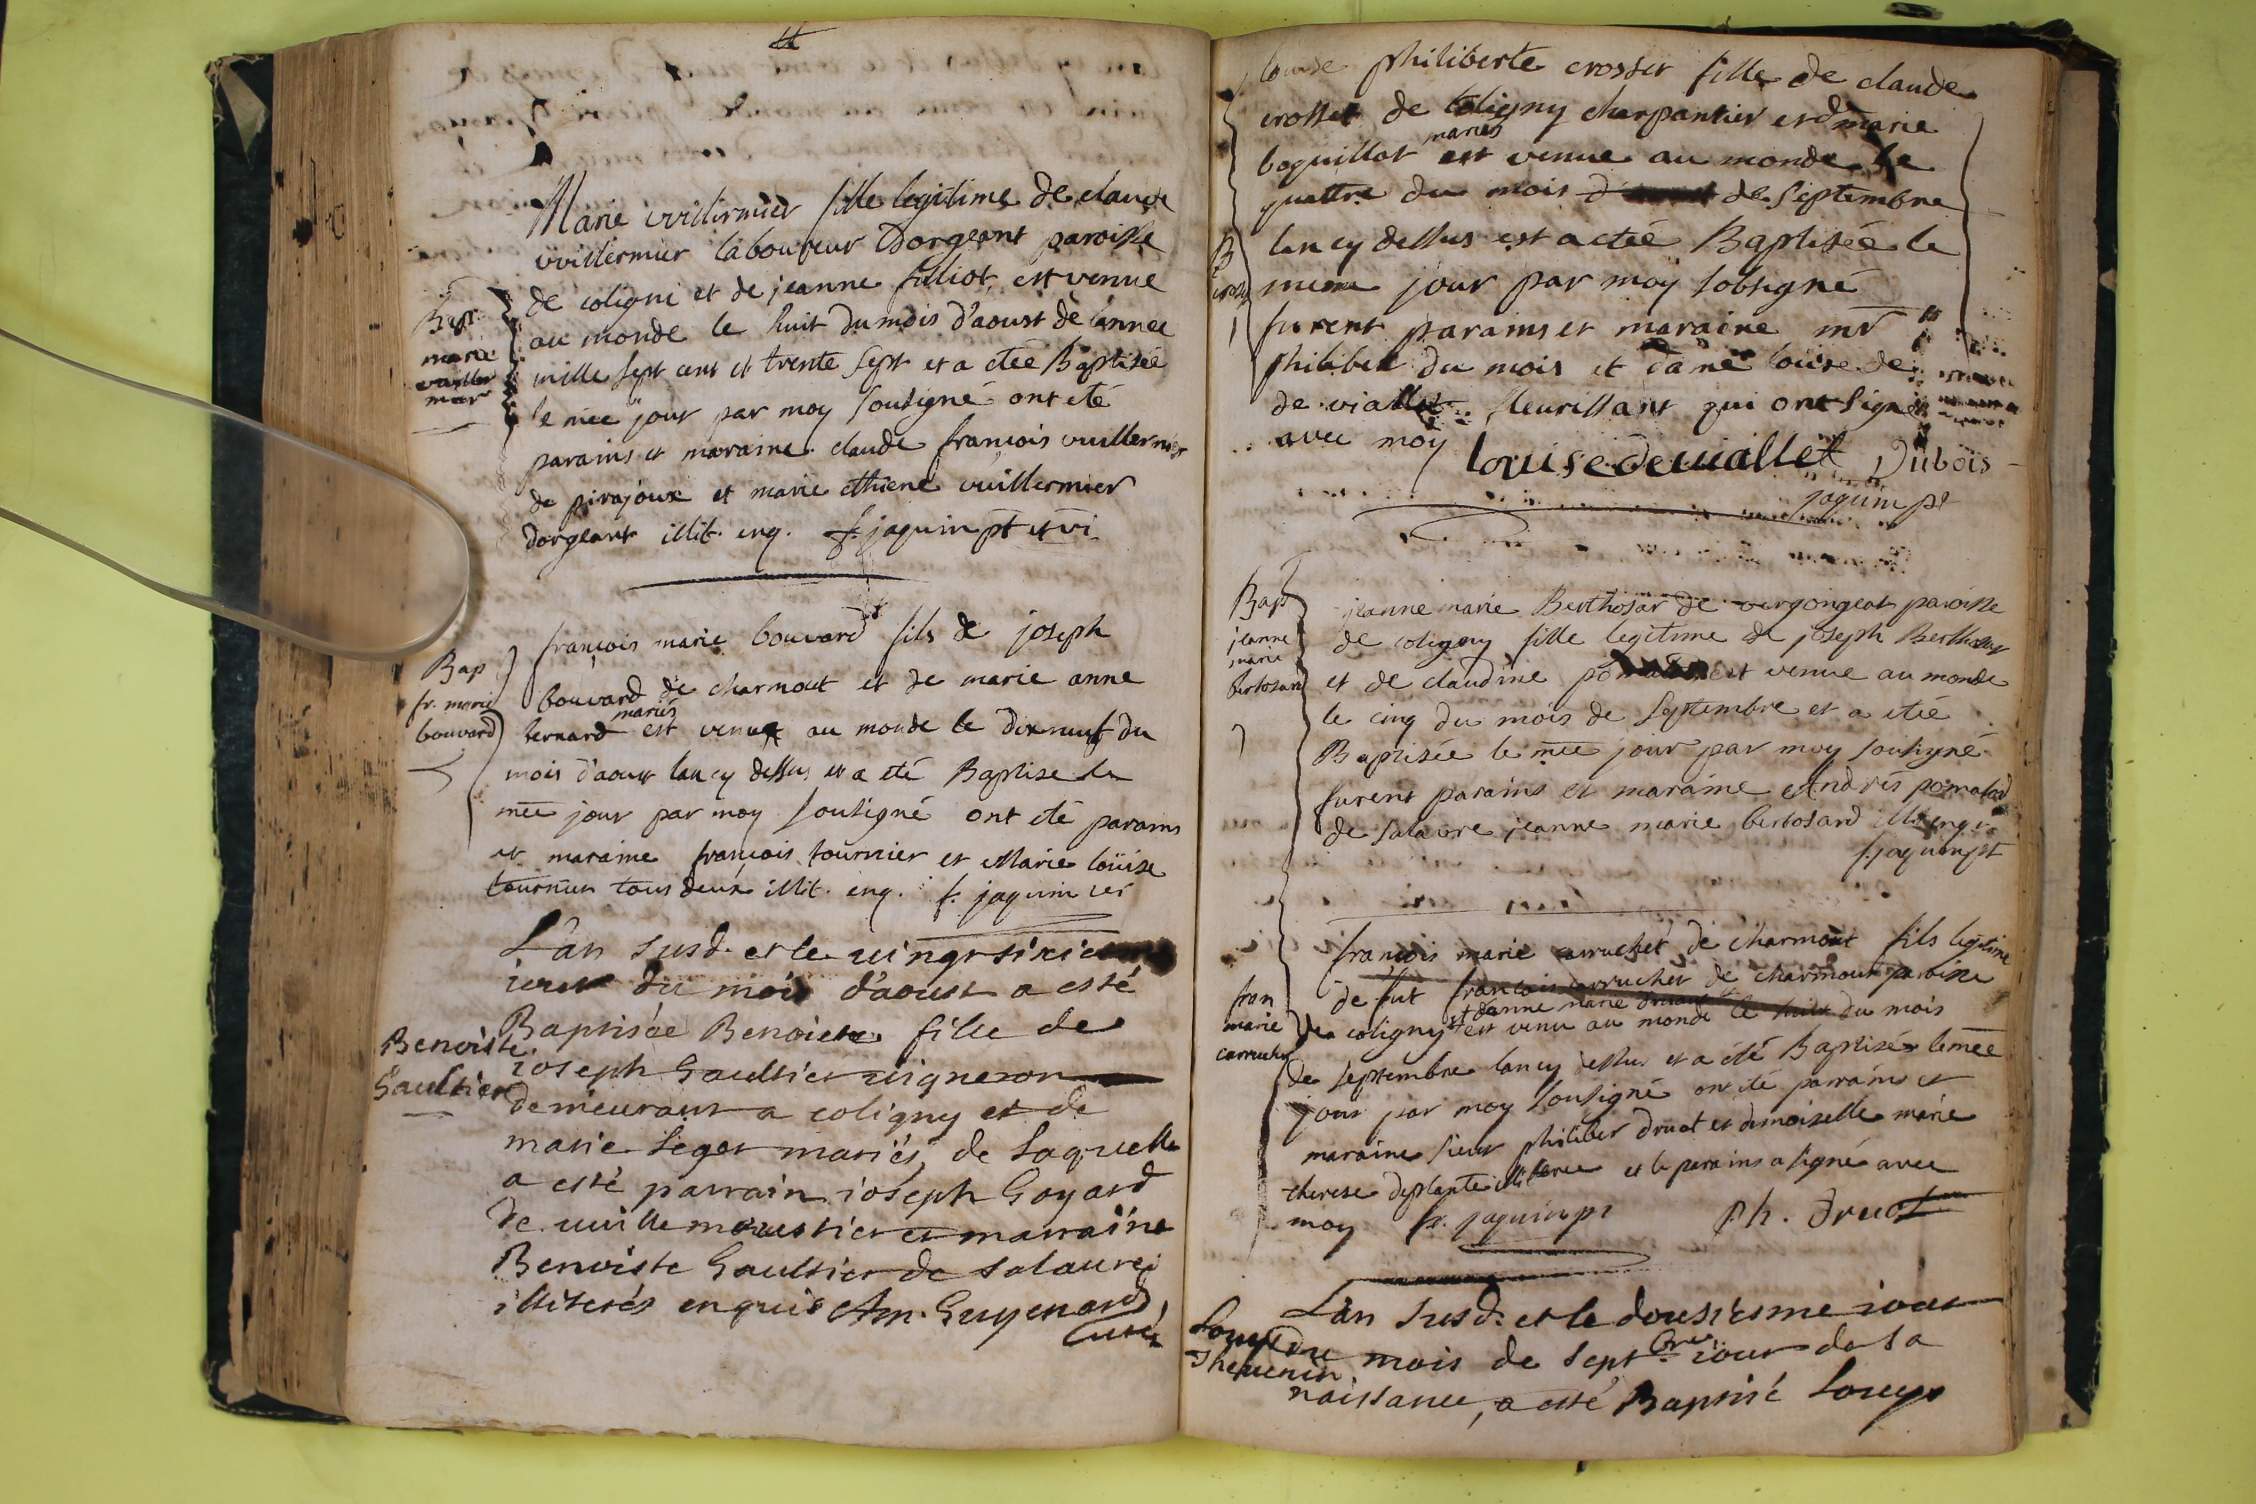 Marie vvilirmier fille legitime de claude
vvillermier laboureur Dorgeant paroisse
de coligni et de jeanne filliot, est venue
au monde le huit du mois d'aoust de lannee
mille sept cent et trente sept et a etée Baptisée
le mee jour par moy sousigné ont eté
parains et maraine claude françois vuillermier
de pirajoux et marie ethiene vuillermier
dorgeant illit. enq. f. jaquin pt et vi
Bap
marie
vuiller
mier
françois marie bouvard fils de joseph
bouvard de charmout et de marie anne
bernard mariés est venu au monde le dix neuf du
mois d'aoust lan cy dessus et a eté Baptise le
mee jour par moy sousigné ont eté parains
et maraine françois tournier et Marie loüise
tournier tous deux illit. enq. f. jaquin
Bap
fr. marie
bouvard
L'an susd. et le vingt sixieme
iour du mois d'aoust a esté
Baptisée Benoiste fille de
ioseph Gaultier vigneron
demeurant a coligny et de
marie leger mariés, de laquelle
a esté parrain ioseph Goyard
de villemoustier et marraine
Benoiste Gaultier de salaure
illiterés enquis Am. Guyenard,
curé
Benoiste
Gaultier
louise philiberte crosset fille de claude
crosset de coligny charpantier et d marie
boquillot mariés est venue au monde le
quattre du mois de Septembre
lan cy dessus est a eteé Baptiséé le
meme jour par moy sobsigné
furent parains et maraine mr
philibert du mois et dame louise de
de viallet fleurissant qui ont signé
avec moy louise de uiallet Dubois
jaquin pt
B
Bap
jeanne
marie
bertosard
jeanne marie Berthosar de vergongeat paroisse
de coligny fille legitime de joseph Berthosar
et de claudine est venue au monde
le cinq du mois de Septembre et a eteé
Baptisée le mee jour par moy sousigné
furent parains et maraine Andrés
de salavre jeanne marie bertosard illit enqu
f. jaquin pt
fran
marie
carruchet
françois marie carruchet de charmout fils legitime
de fut françois carruchet de charmout paroisse
de coligny et danne marie druant est venu au monde le huit du mois
de septembre lan cy dessus et a eté Baptisé le mee
jour par moy sousigné ont eté parrains et
maraine sieur philiber druat et demoiselle marie
therese et le parains a signé avec
moy fr. jaquin pt Ph. Druat
L'an susd. et le dousiesme iour
du mois de septbre iour de sa
naissance, a esté Baptisé Louys
Louys
Thevenin